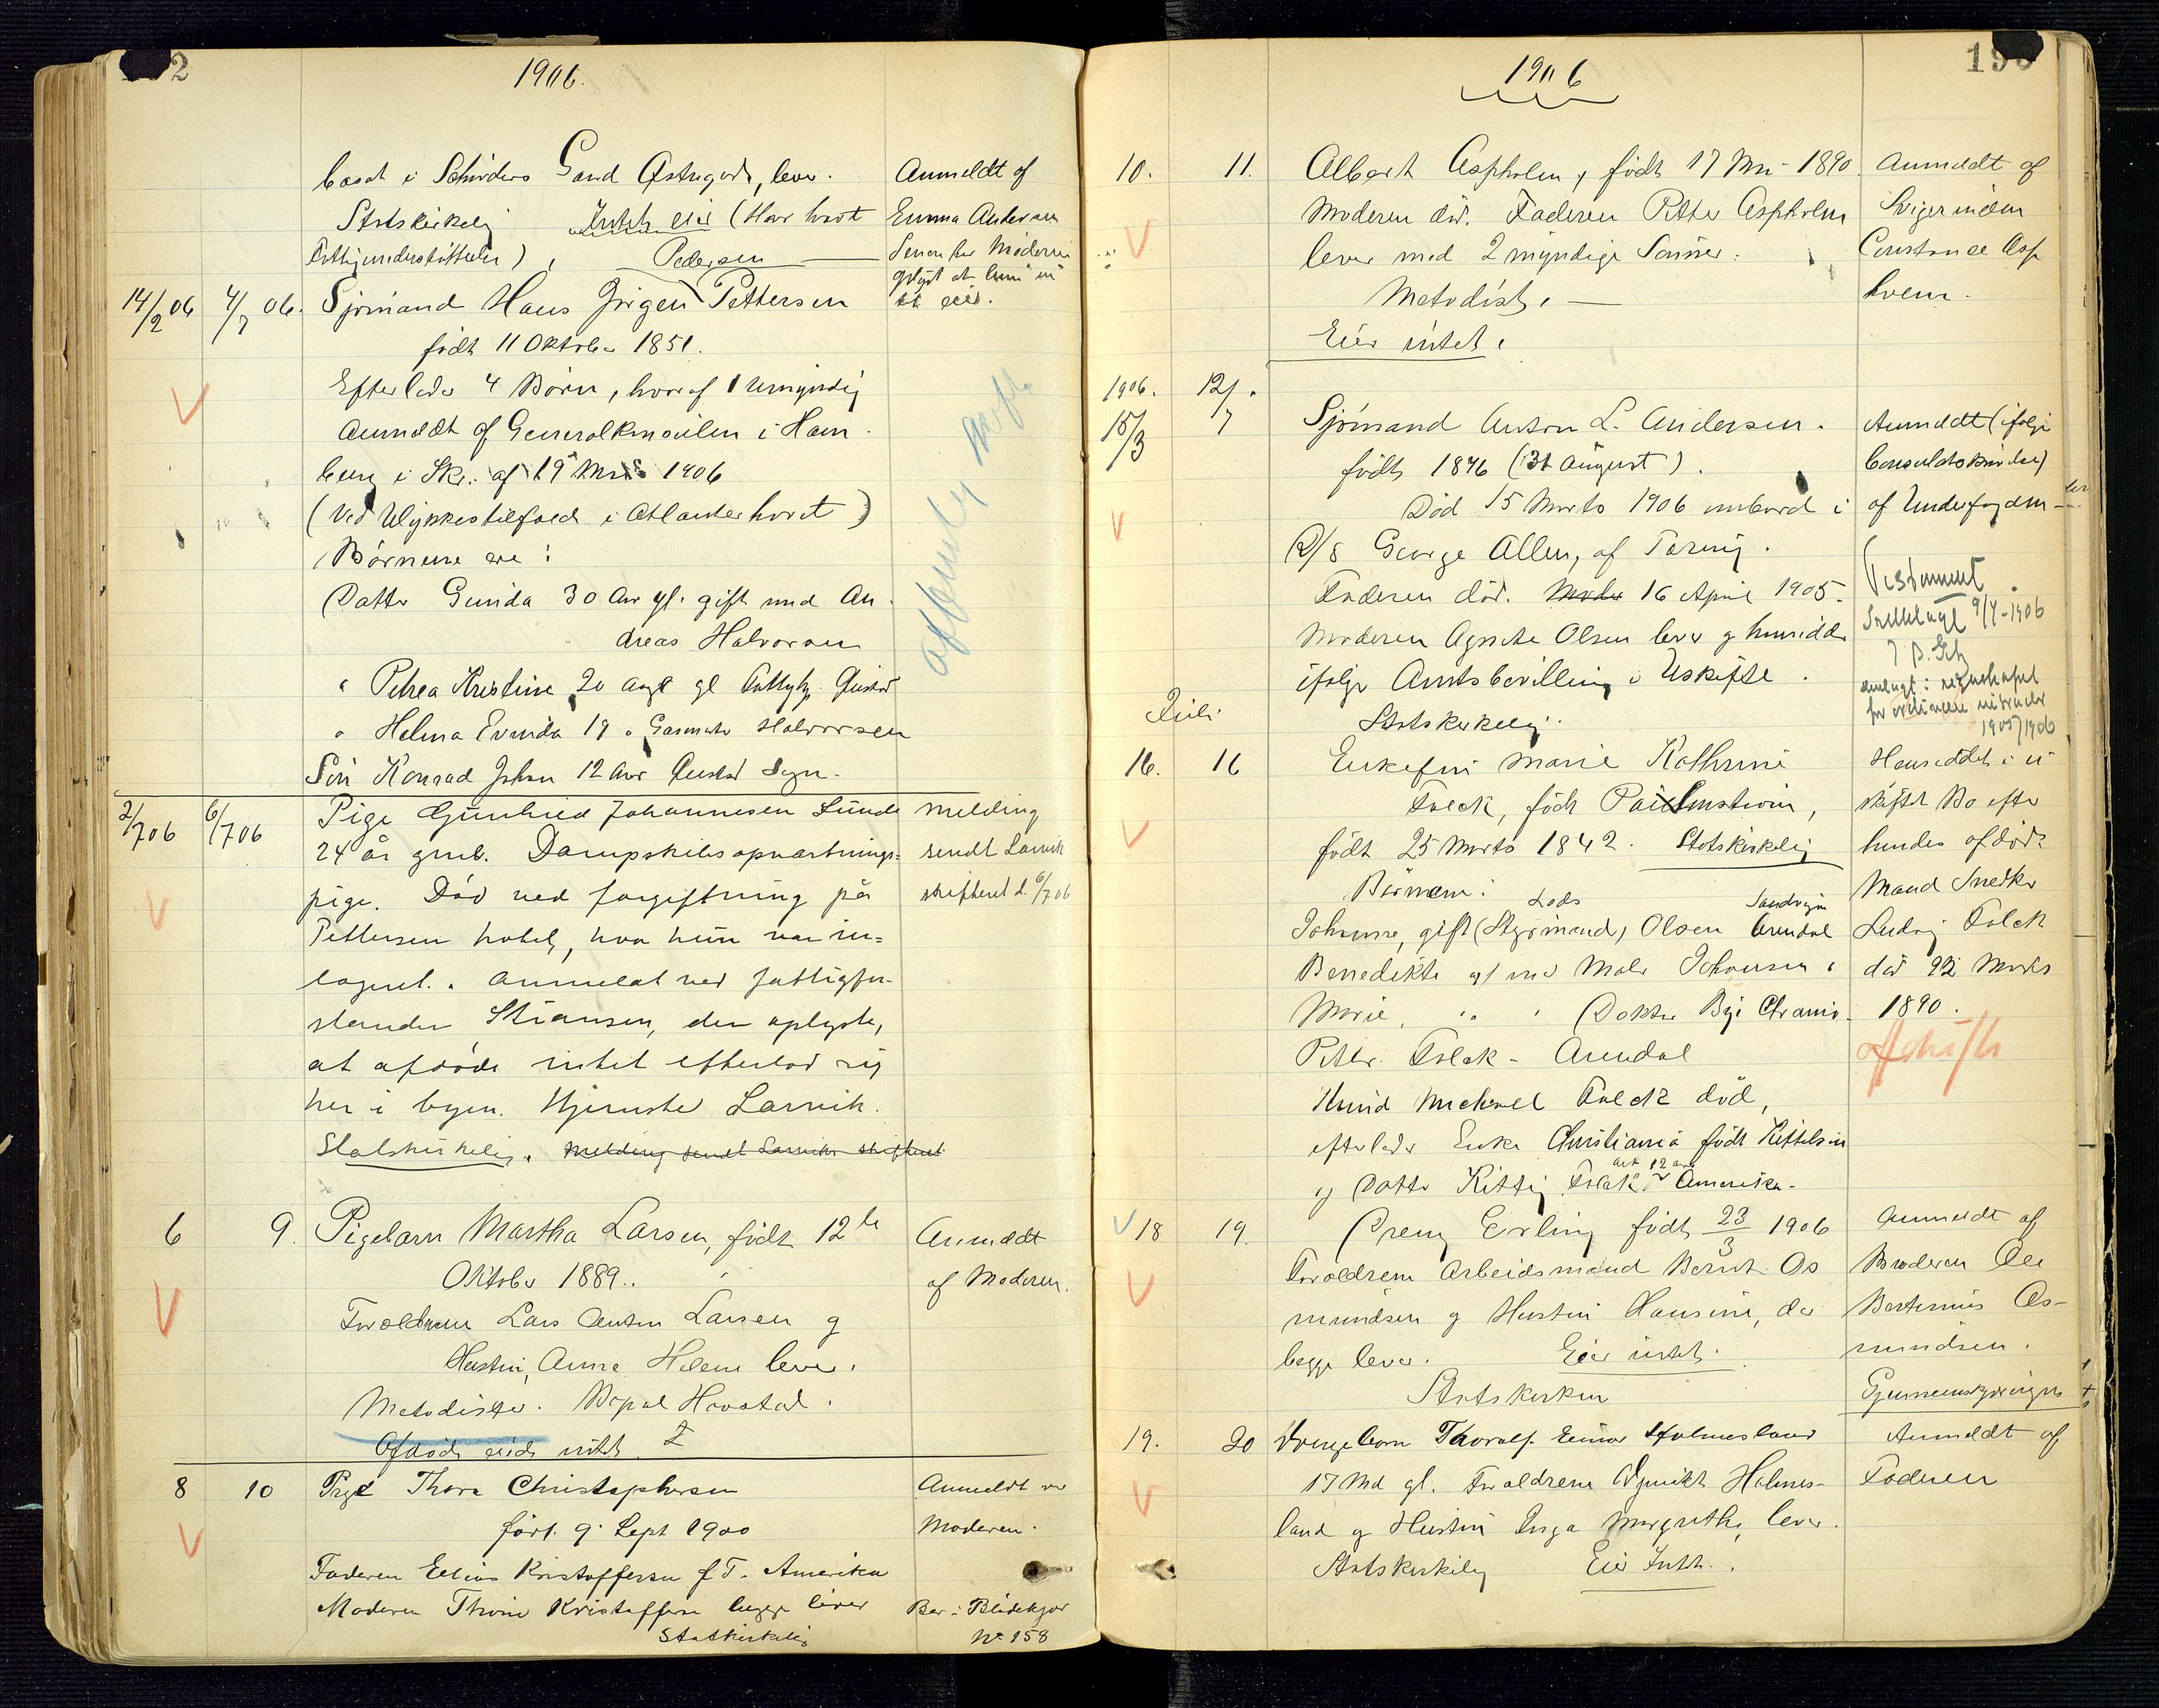 2
1906.
boed i Schröders Gaard Østregade, lever.
Statskirkelig Intet eier (Har havt
Fattigunderstøttelse)
Anmeldt af
Emma Andersen
Senere har Moderen
oplyst at hun in
tet eier.
14/2 06 4/7 06.
Pedersen
Sjømand Hans Jørgen Pettersen
født 11 Oktober 1851.
Efterlader 4 Børn, hvoraf 1 Umyndig
Anmeldt af Generalkonsulen i Ham
burg i Skr. af 19 1906
(Ved Ulykkestilfæld i Atlanterhavet)
Børnene ere:
Datter Gunda 30 Aar gl. gift med An
dreas Halvorsen
" Petrea Kristine 20 Aar gl
" Helma Evinda 19 " Halvorsen
Søn Konrad Johan 12 Aar
2/7 06 6/7 06
Pige Gunhild Johannesen Lunde
24 år gml. Dampskibsopvartnings=
pige. Død ved forgiftning på
Pettersens hotel, hvor hun var in=
logeret. Anmeldt ved fattigfor-
stander Stiansen, der oplyste,
at afdøde intet efterlod sig
her i byen. Hjemsted Larvik.
Statskirkelig. Melding sendt Larviks skifteret
melding
sendt Larvik
skifteret d. 6/7 06
6 9.
Pigebarn Martha Larsen, født 12te
Oktober 1889.
Forældrene Lars Anton Larsen og
Hustru, Anna Helene lever.
Metodister.
Afdøde eiede intet.
Anmeldt
af Moderen.
8 10
Pige Thora Christophersen
født. 9. Sept 1900
Faderen Elias Kristoffersen f. T. Amerika
Moderen Thrine Kristoffersen begge lever
Statskirkelig
Anmeldt av
Moderen.
Bor i Blødekjær
No. 158
1906
19
10. 11.
Albert Aspholm, født 17 Mai 1890.
Moderen død. Faderen Petter Aspholm
lever med 2 myndige Sønner.
Metodist.
Eier intet.
Anmeldt af
Svigerinden
Constance Asp
holm.
1906.
15/3 12/7
Sjømand Anton L. Andersen.
født 1876 (31 August).
Død 15 Marts 1906 ombord i
D/S George Allen, af
Faderen død. Moder 16 April 1905.
Moderen Agnete Olsen lever og hensidder
ifølge Amtsbevilling i Uskifte.
Statskirkelig.
Anmeldt (ifølge
Consulatskrivelse)
af Underfogden
Testament
9/7-1906
1905/1906
Juli
16. 16
Enkefru Marie Kathrine
Falck, født
født 25 Marts 1842. Statskirkelig
Børnene:
Lods Sandvigen
Johanne, gift (Styrmand) Olsen Arendal
Benedikte gf med Maler Johansen
Marie, " " Doktor Chrania
Petter Falck - Arendal
Knud Michael Falck død,
efterlader Enke Christiania født Kittelsen
og Datter Kitty Falck 12 aar Amerika.
Hensiddet i u
skiftet Bo efter
hendes afdøde
Mand Snedker
Ludvig Falck
død 22 Marts
1890.
afskifte
18 19.
Dreng Erling født 23/3 1906
Forældrene Arbeidsmand Bernt As
mundsen og Hustru Hansine, der
begge lever. Eier intet.
Statskirken
Anmeldt af
Broderen Ole
As-
mundsen.
19. 20
Drengebarn Thoralf Einar Holmesland
17 Md gl. Forældrene Holmes-
land og Hustru Inga Margrethe, lever.
Statskirkelig Eier Intet.
Anmeldt af
Faderen